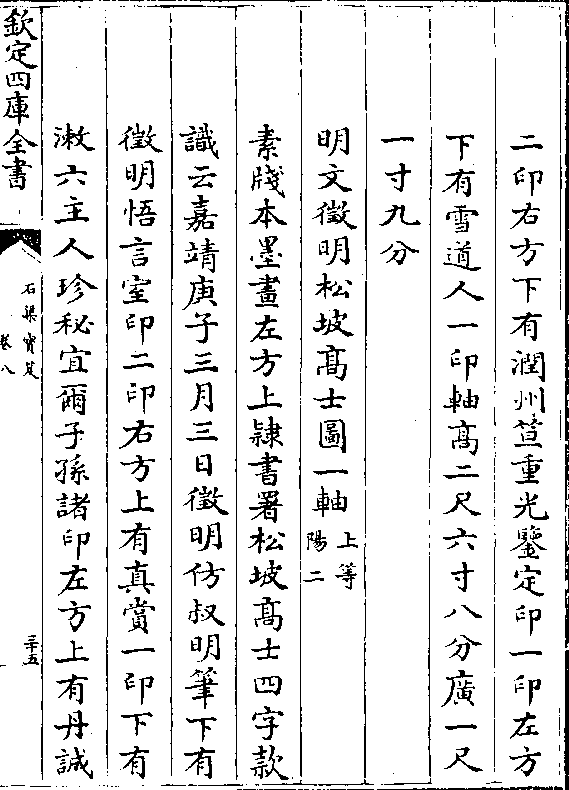 二印右方下有潤州笪重光鑒定印一印左方
下有雪道人一印軸髙二尺六寸八分廣一尺
一寸九分
明文徵明松坡髙士圖一軸上等陽二
素牋本墨畫左方上隸書署松坡髙士四字款
識云嘉靖庚子三月三日徵明仿叔明筆下有
徵明悟言室印二印右方上有真賞一印下有
漱六主人珍秘宜爾子孫諸印左方上有丹誠
欽定四庫全書
石渠寳笈
卷八
三十五